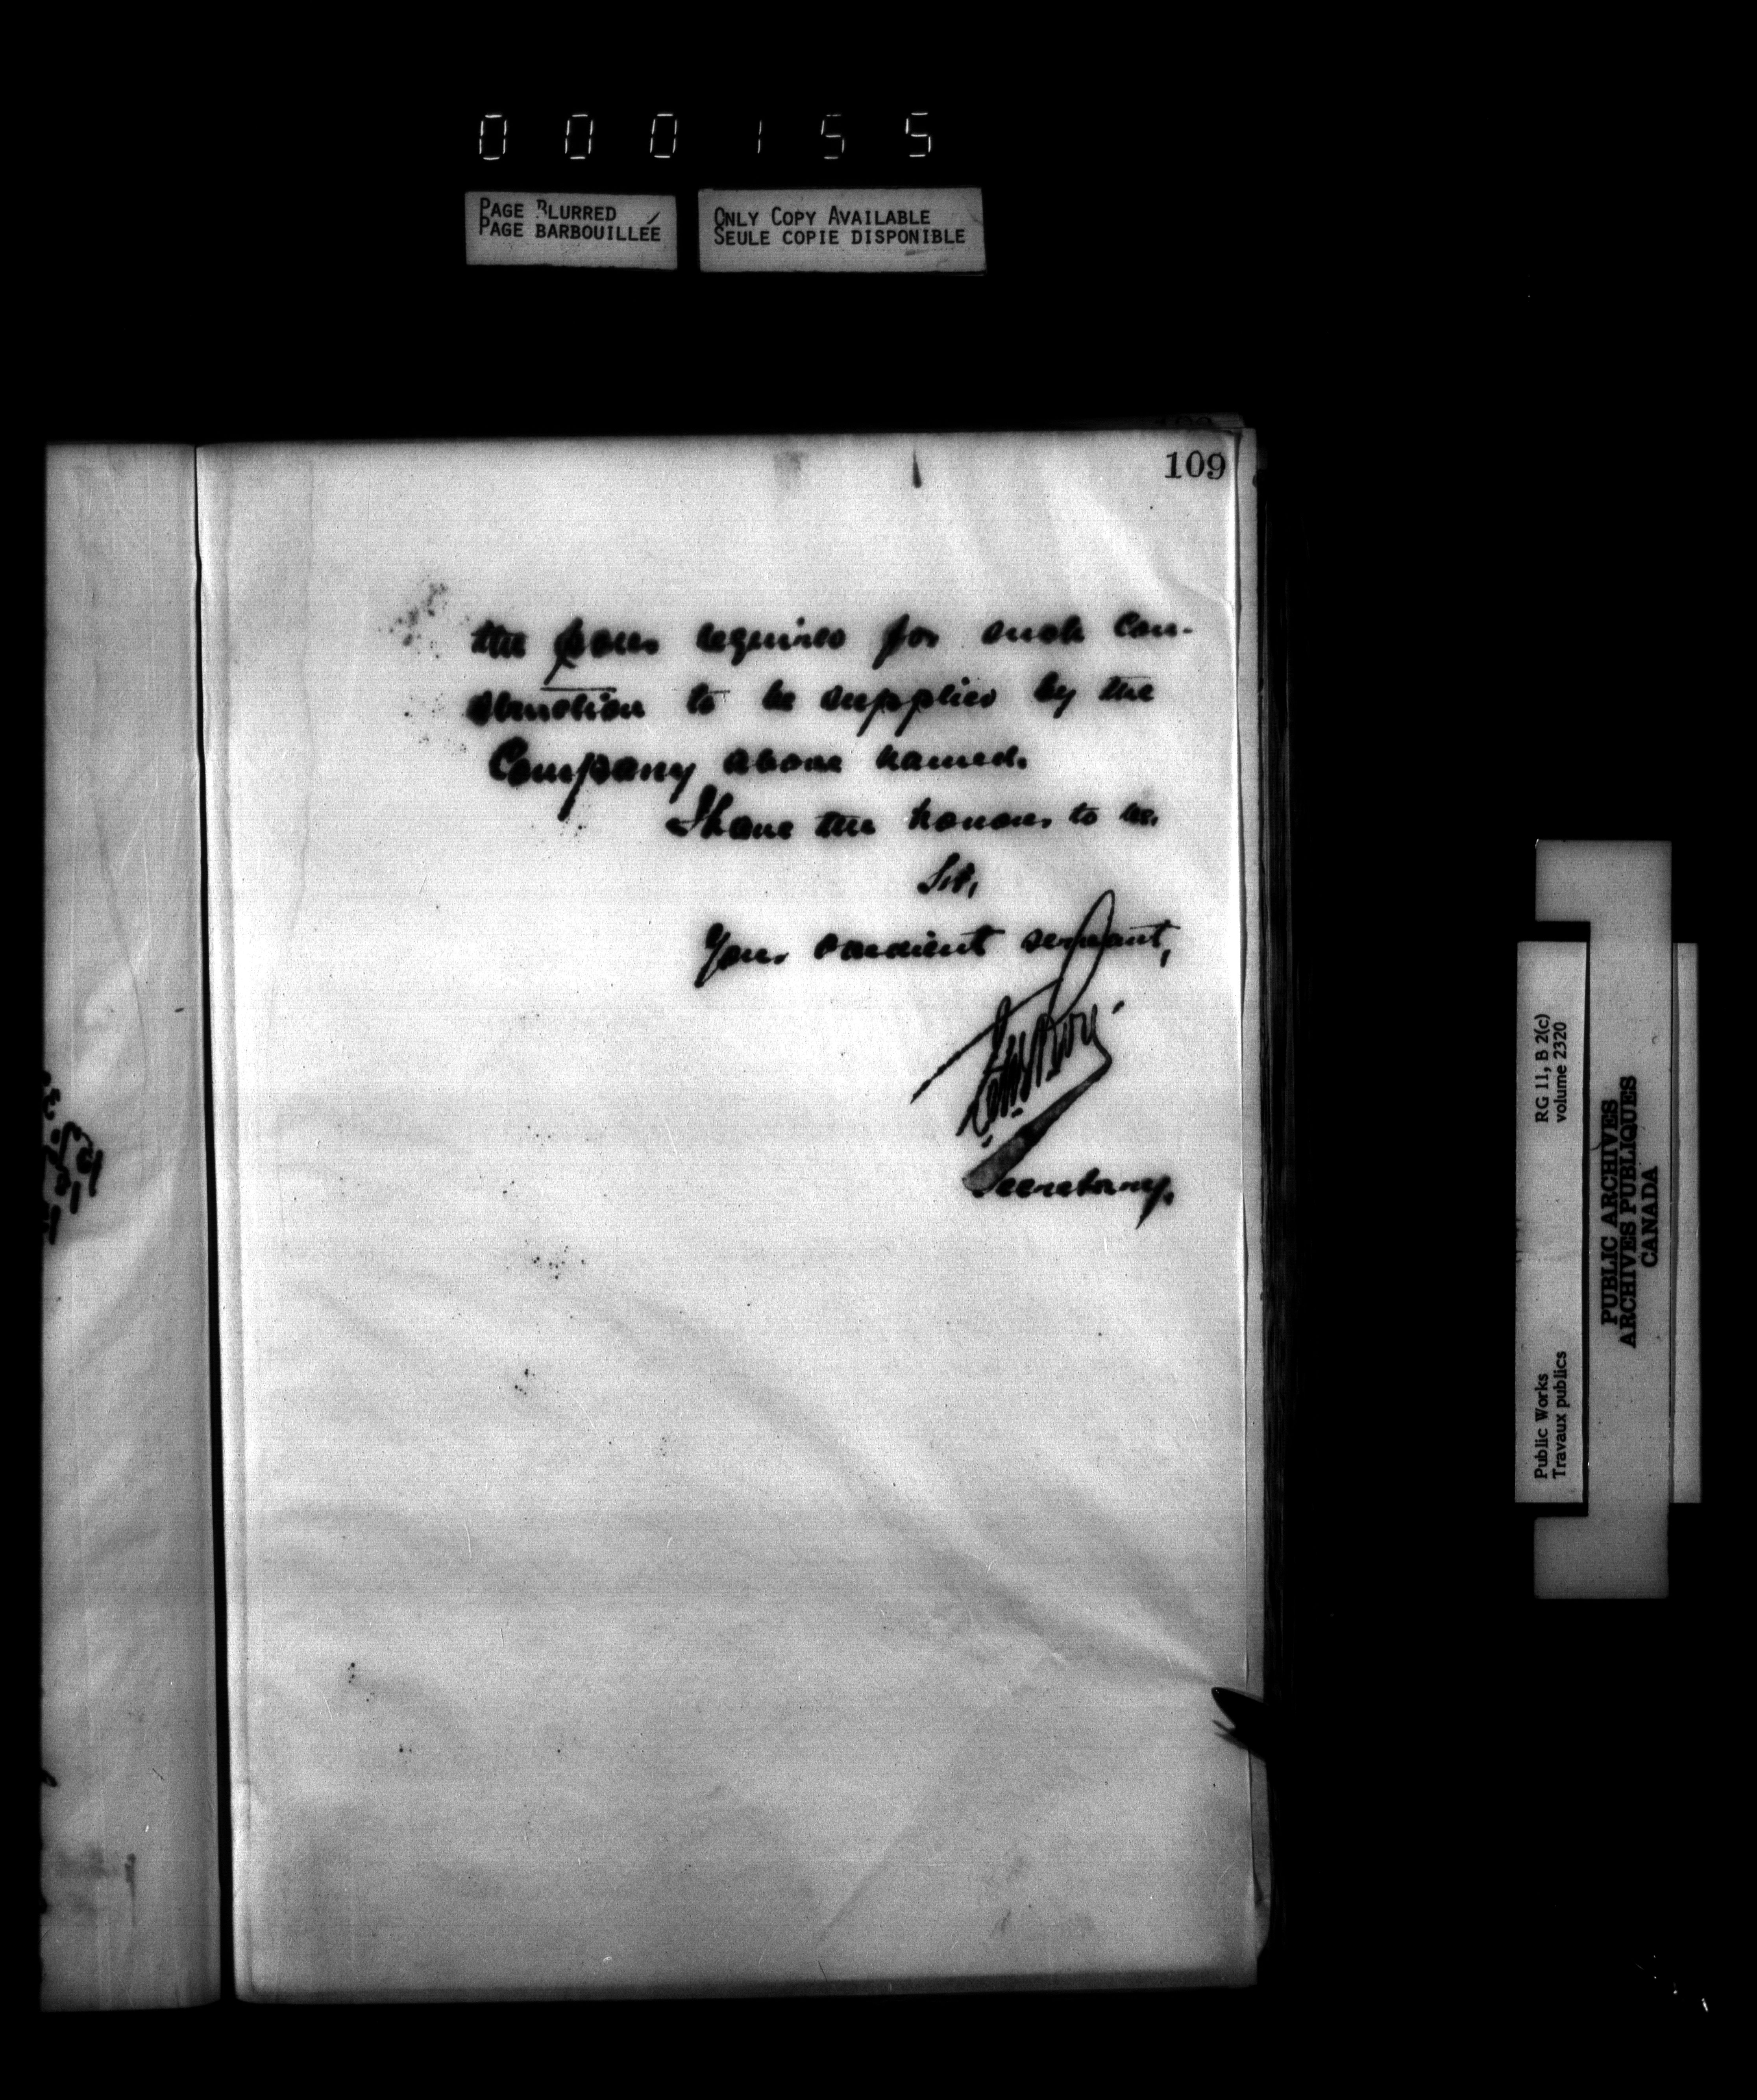 000155
PAGE BLURRED
PAGE BARBOUILLÉE
ONLY COPY AVAILABLE
SEULE COPIE DISPONIBLE
109
the required for such con-
struction to be supplied by the
Company above named.
I have the honour to be,
Sir,
Your obedient servant,
Secretary.
Public Works
Travaux publics
RG 11, B 2(c)
volume 2320
PUBLIC ARCHIVES
ARCHIVES PUBLIQUES
CANADA